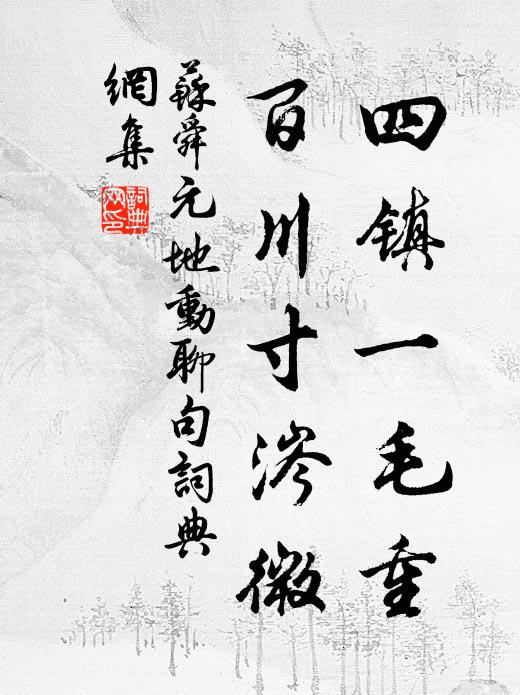 四镇一毛重
百川寸涔微
蘇舜元地動聊句詞典
網集
詞典網印